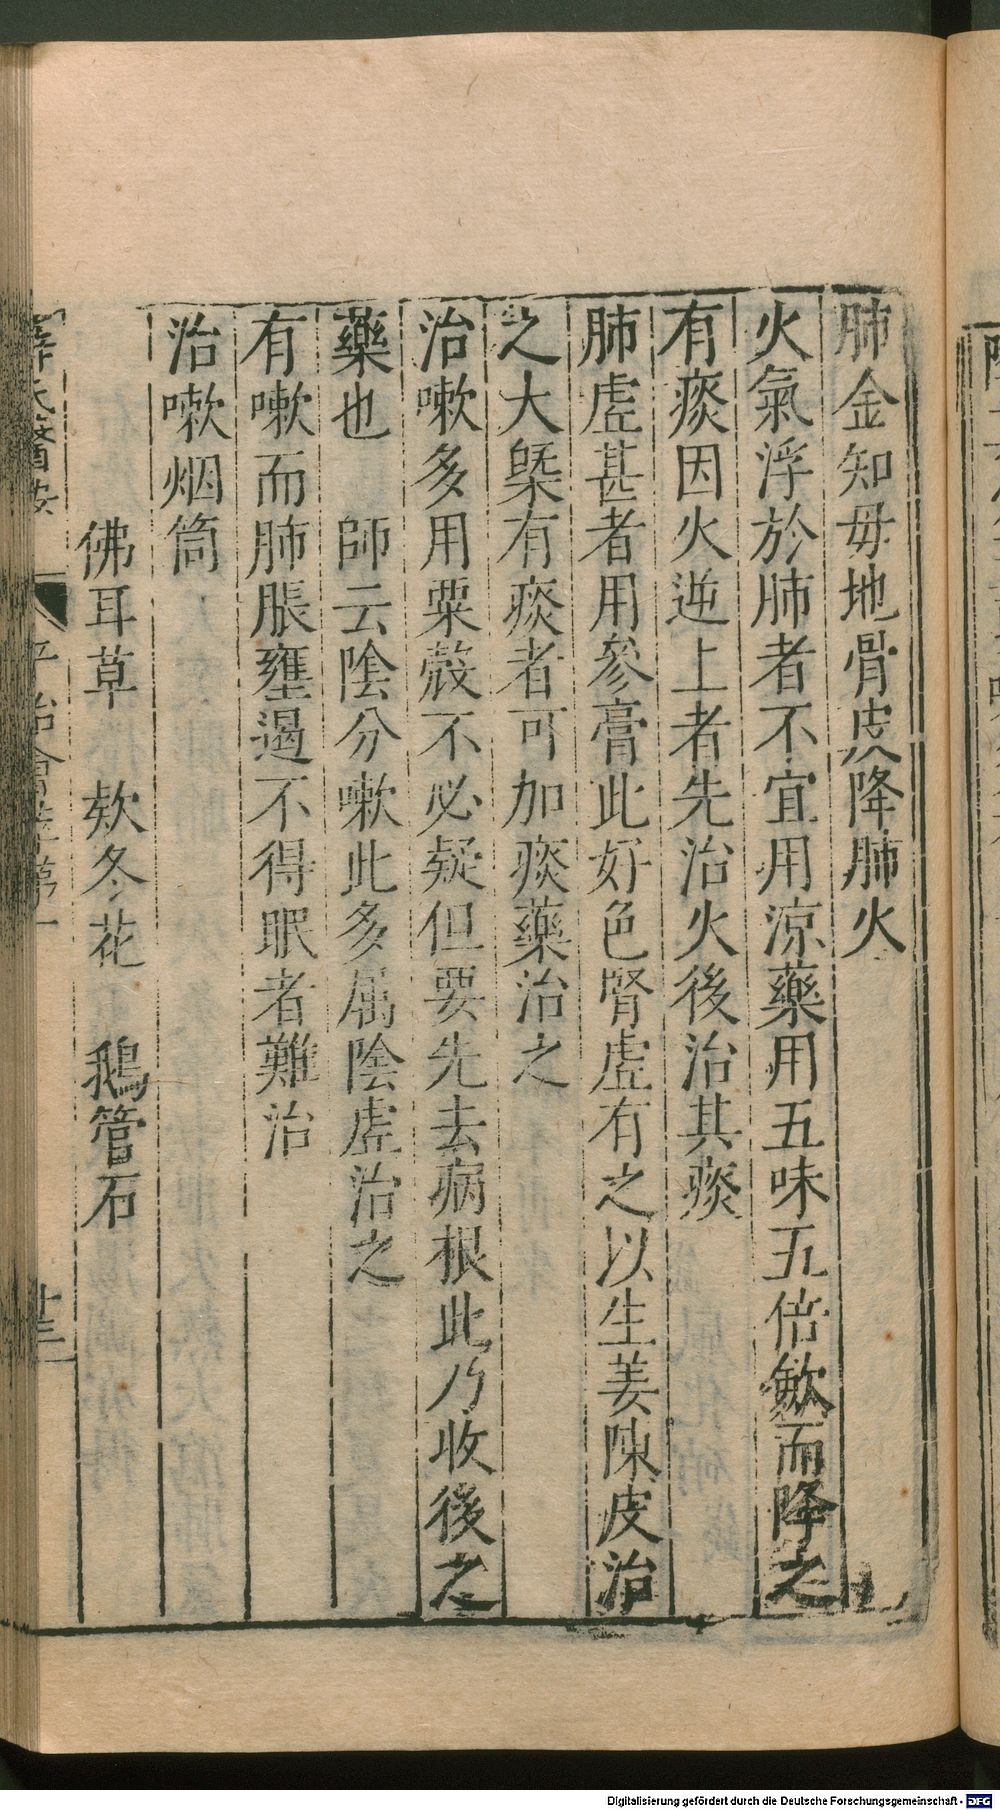 肺金知母地骨皮降肺火
火氣浮於肺者不宜用涼藥用五味五倍斂而降之
有痰因火逆上者先治火後治其痰
肺虛甚者用參膏此好色腎虛有之以生姜陳皮治
之大槩有痰者可加痰藥治之
治嗽多用粟殼不必疑但要先去病根此乃收後之
藥也　師云陰分嗽此多属陰虛治之
有嗽而肺脹壅遏不得眠者難治
治嗽烟筒
佛耳草　欵冬花　鵝管石
薛氏醫按　平治會萃第一　廿三
Digitalisierung gefördert durch die Deutsche Forschungsgemeinschaft - DFG